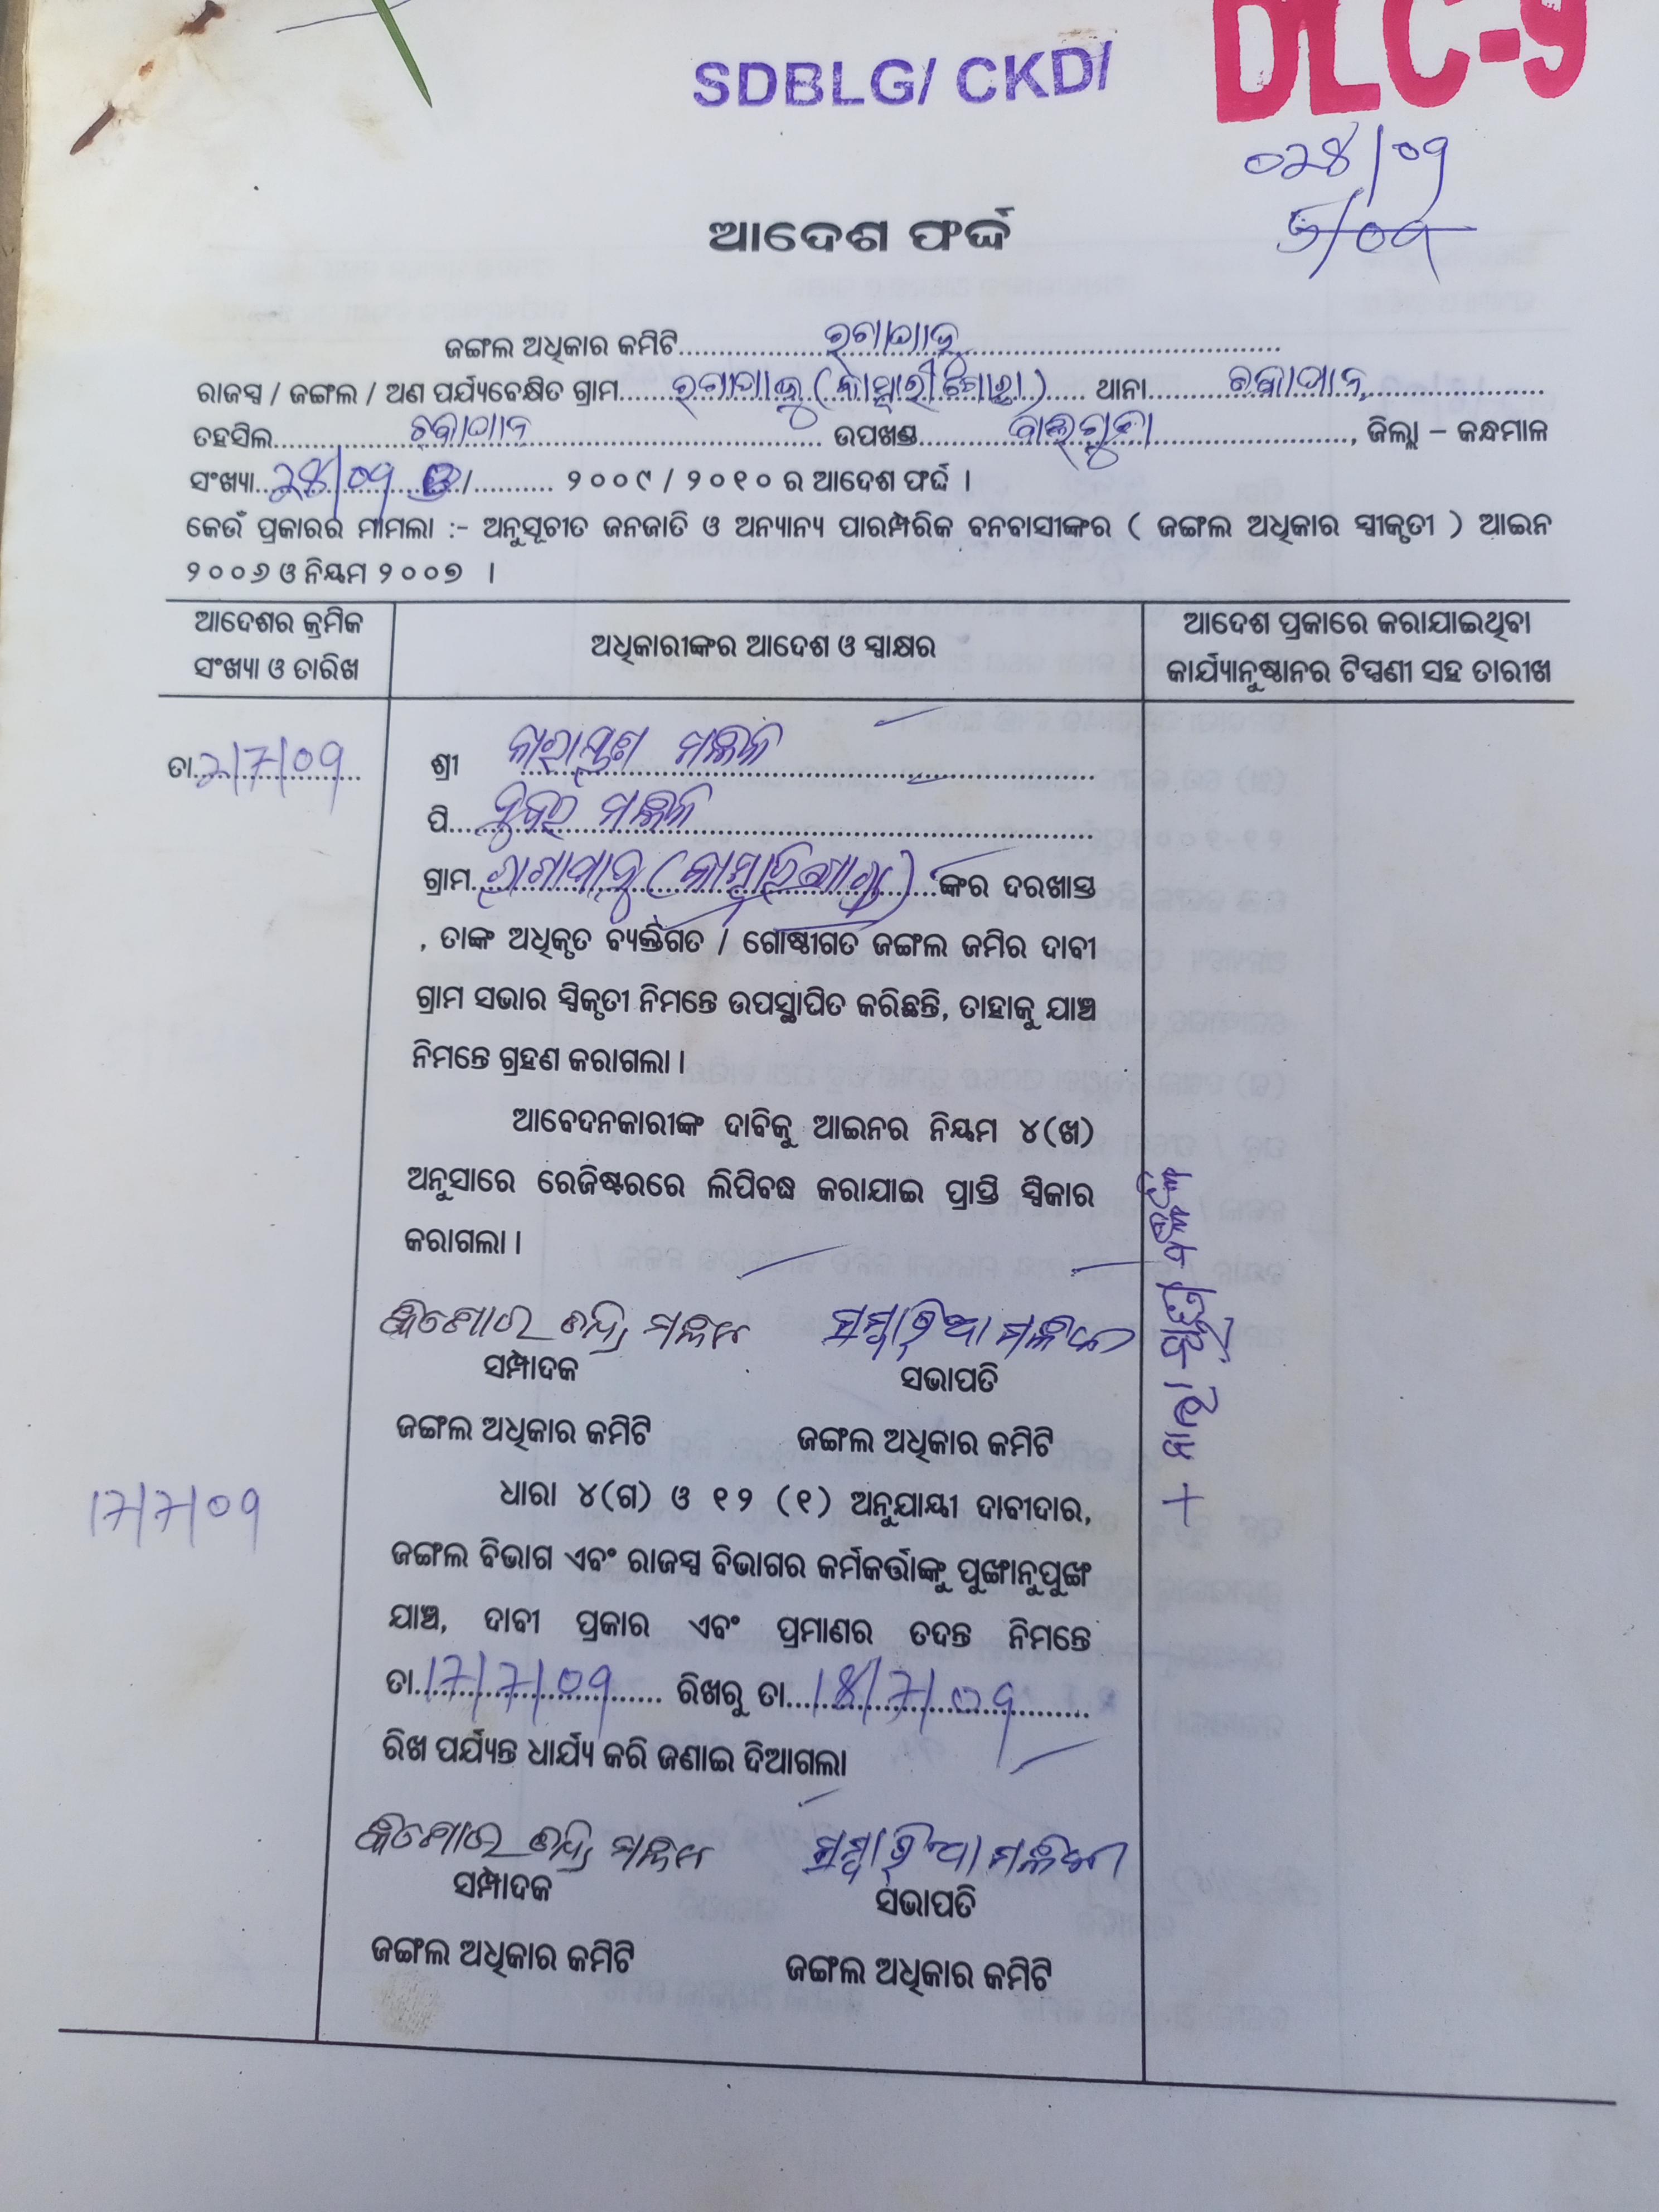 DLC-9
SDBLG/ CKD/
୦୨୪/୦୨
ଆଦେଶ ଫର୍ଦ୍ଦ
ଜଙ୍ଗଲ ଅଧିକାର କମିଟି
ରାଜସ୍ୱ / ଜଙ୍ଗଲ / ଅଣ ପର୍ଯ୍ୟବେକ୍ଷିତ ଗ୍ରାମ ଥାନା
ତହସିଲ ଉପଖଣ୍ଡ , ଜିଲ୍ଲା – କନ୍ଧମାଳ
ସଂଖ୍ୟା / ୨୦୦୯ / ୨୦୧୦ ର ଆଦେଶ ଫର୍ଦ୍ଦ ।
କେଉଁ ପ୍ରକାରର ମାମଲା :- ଅନୁସୂଚୀତ ଜନଜାତି ଓ ଅନ୍ୟାନ୍ୟ ପାରମ୍ପରିକ ବନବାସୀଙ୍କର ( ଜଙ୍ଗଲ ଅଧିକାର ସ୍ୱୀକୃତୀ ) ଆଇନ
୨୦୦୬ ଓ ନିୟମ ୨୦୦୭ ।
ଆଦେଶର କ୍ରମିକ
ସଂଖ୍ୟା ଓ ତାରିଖ
ଅଧିକାରୀଙ୍କର ଆଦେଶ ଓ ସ୍ୱାକ୍ଷର
ଆଦେଶ ପ୍ରକାରେ କରାଯାଇଥିବା
କାର୍ଯ୍ୟାନୁଷ୍ଠାନର ଟିପ୍ପଣୀ ସହ ତାରୀଖ
ତା. 2/7/09
ଶ୍ରୀ ମଲ୍ଲିକ
ପି. ମଲ୍ଲିକ
ଗ୍ରାମ ଙ୍କର ଦରଖାସ୍ତ
, ତାଙ୍କ ଅଧିକୃତ ବ୍ୟକ୍ତିଗତ / ଗୋଷ୍ଠୀଗତ ଜଙ୍ଗଲ ଜମିର ଦାବୀ
ଗ୍ରାମ ସଭାର ସ୍ୱିକୃତୀ ନିମନ୍ତେ ଉପସ୍ଥାପିତ କରିଛନ୍ତି, ତାହାକୁ ଯାଞ୍ଚ
ନିମନ୍ତେ ଗ୍ରହଣ କରାଗଲା ।
ଆବେଦନକାରୀଙ୍କ ଦାବିକୁ ଆଇନର ନିୟମ ୪(ଖ)
ଅନୁସାରେ ରେଜିଷ୍ଟରରେ ଲିପିବଦ୍ଧ କରାଯାଇ ପ୍ରାପ୍ତି ସ୍ୱିକାର
କରାଗଲା ।
ସମ୍ପାଦକ ସଭାପତି
ଜଙ୍ଗଲ ଅଧିକାର କମିଟି ଜଙ୍ଗଲ ଅଧିକାର କମିଟି
17/7/09
ଧାରା ୪(ଗ) ଓ ୧୨ (୧) ଅନୁଯାୟୀ ଦାବୀଦାର,
ଜଙ୍ଗଲ ବିଭାଗ ଏବଂ ରାଜସ୍ୱ ବିଭାଗର କର୍ମକର୍ତ୍ତାଙ୍କୁ ପୁଙ୍ଖାନୁପୁଙ୍ଖ
ଯାଞ୍ଚ, ଦାବୀ ପ୍ରକାର ଏବଂ ପ୍ରମାଣର ତଦନ୍ତ ନିମନ୍ତେ
ତା. 17/7/09 ରିଖରୁ ତା. 18/7/09
ରିଖ ପର୍ଯ୍ୟନ୍ତ ଧାର୍ଯ୍ୟ କରି ଜଣାଇ ଦିଆଗଲା
ସମ୍ପାଦକ ସଭାପତି
ଜଙ୍ଗଲ ଅଧିକାର କମିଟି ଜଙ୍ଗଲ ଅଧିକାର କମିଟି